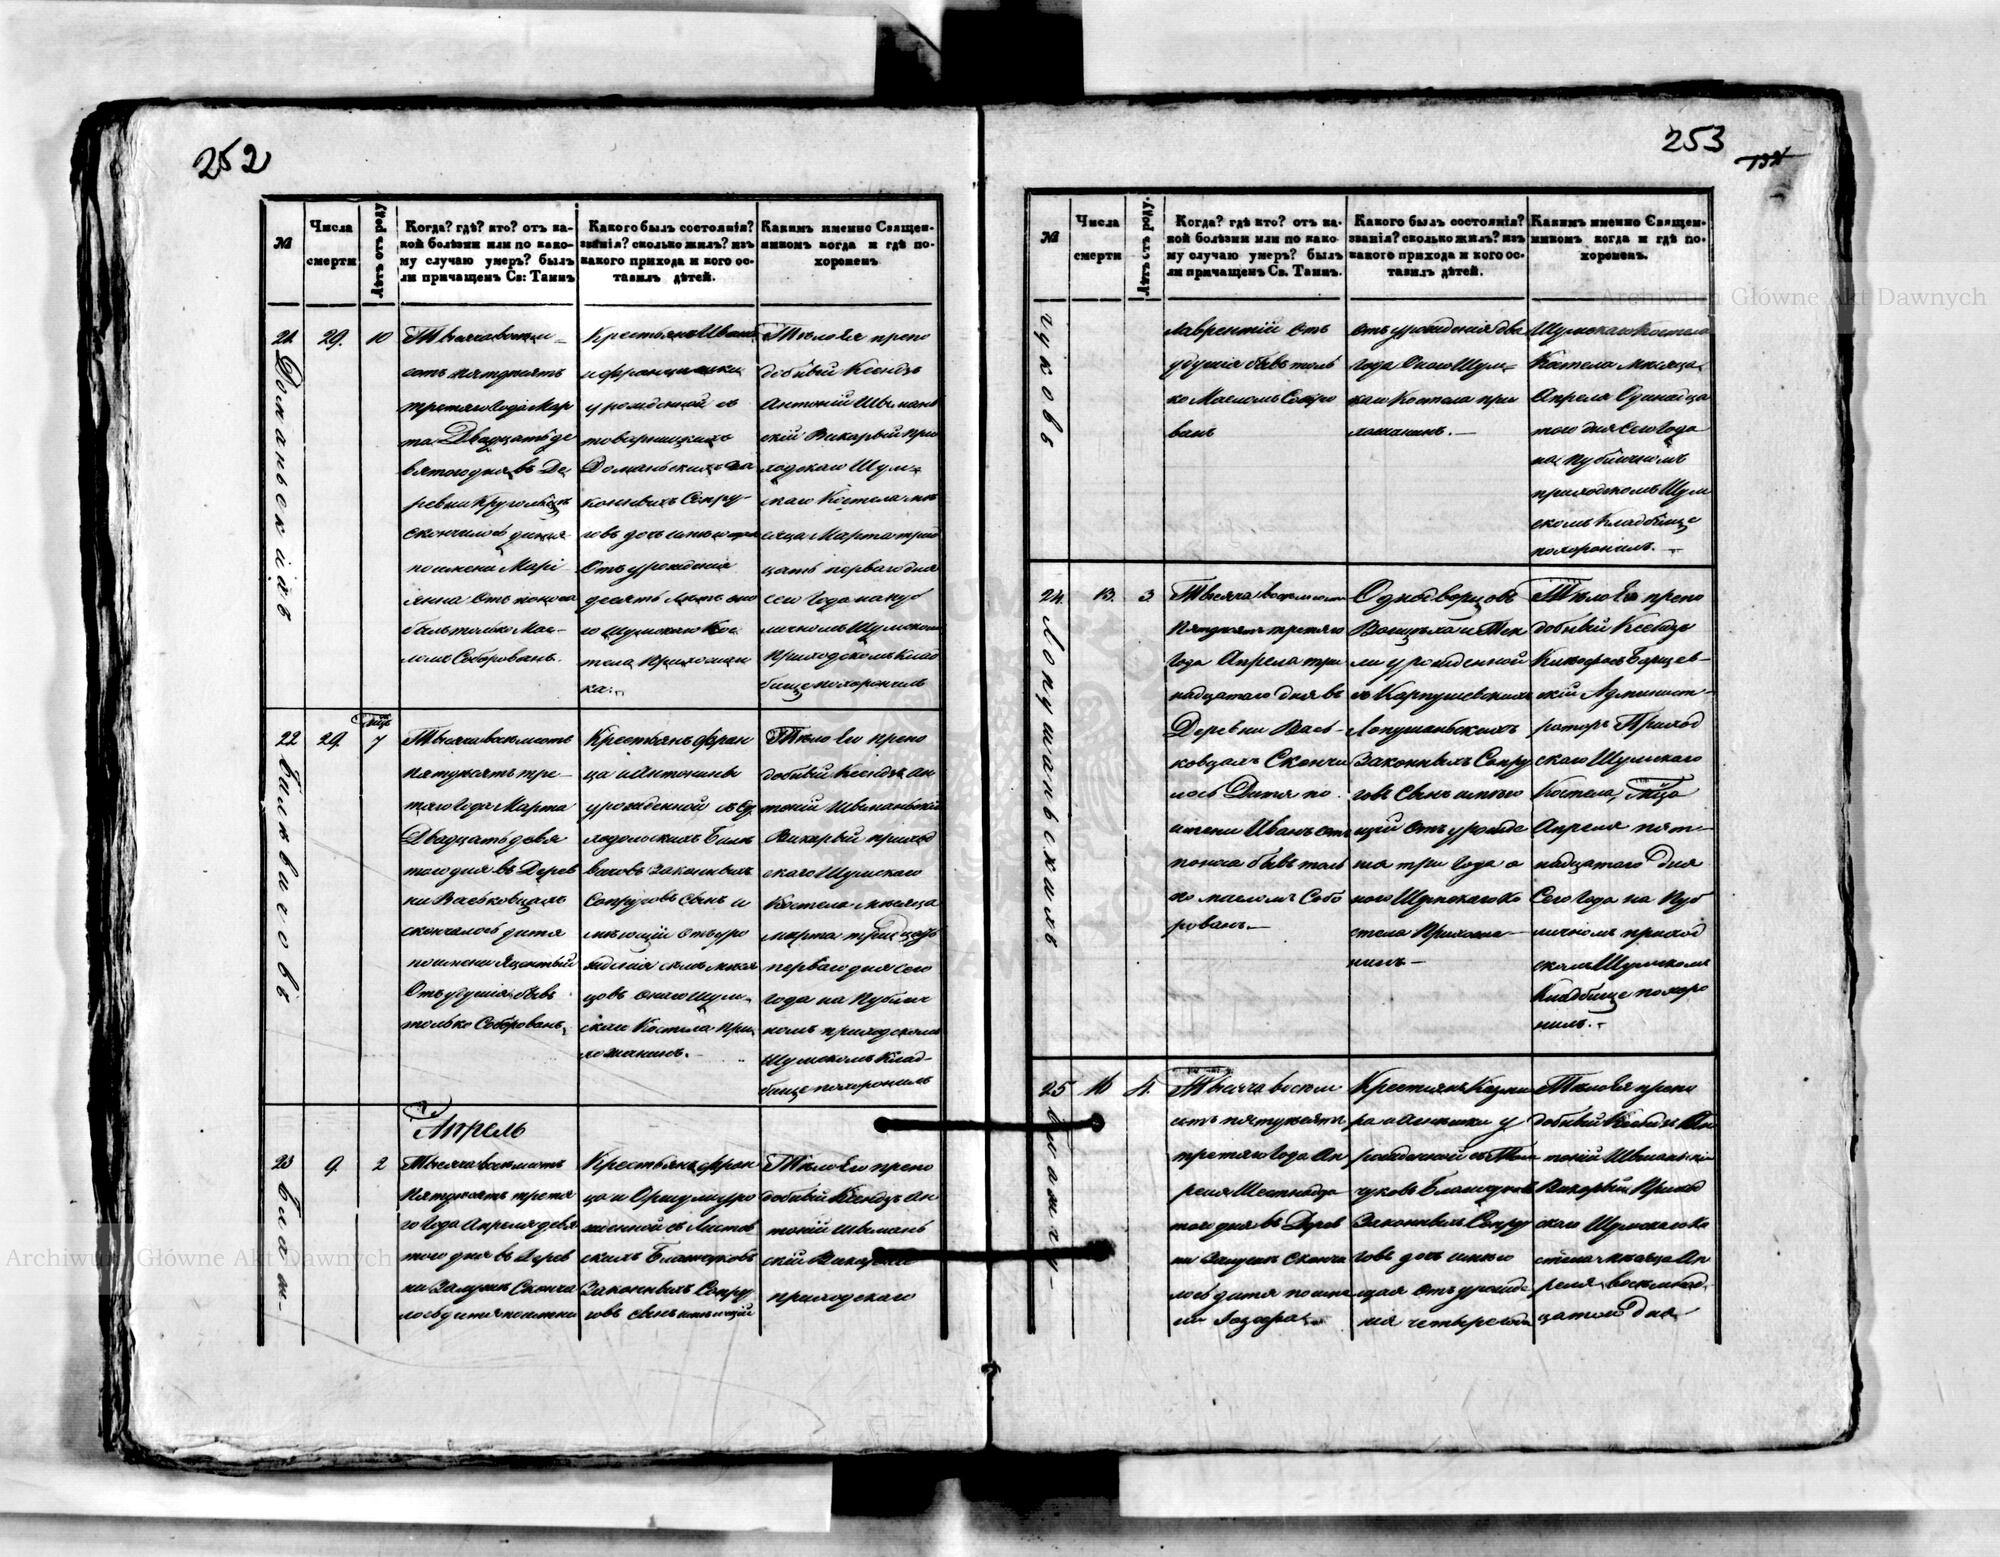 252
№
Числа
смерти
Лѣтъ отъ роду
Когда? гдѣ? кто? отъ ка-
кой болѣзни или по како-
му случаю умеръ? былъ
ли причащенъ Св: Таинъ
Какого былъ состоянія?
званія? сколько жилъ? изъ
какого прихода и кого ос-
тавилъ дѣтей.
Какимъ именно Священ-
никомъ когда и гдѣ по-
хороненъ
21. 29. 10
Доманьскихъ
Тысяча восьм
сотъ пятдесятъ
третяго Года Мар
та Двадцать де
вятого дня въ Де
ревни
скончалось дитя
по имени Марі
янна отъ поноса
бывъ только Мас-
ломъ Соборованъ.
Крестьянъ Ивана
и Францишки
урожденной съ
Доманьскихъ за
конныхъ Супру-
говъ дочь имеющая
Отъ урожденія
десять лѣтъ она
го Шумскаго Кос
тела Прихожан
ка.
Тѣло Ея препо
добный Ксендзъ
Антоній Шиманъ
скій Викарый при
ходскаго Шум-
скаго Костела мѣ
сяца Марта трид
цать перваго дня
сего Года на пуб
личномъ Шумскомъ
Приходскомъ Клад
бище похоронилъ
22 29. 7
Бильвасовъ
Тысяча восьмсотъ
пятдесятъ тре-
тяго Года Марта
Двадцать девя
того дня въ Дерев
ни Васьковцахъ
скончалось дитя
по имени
Отъ удушія бывъ
только Соборованъ.
Крестьянъ Фран
ца и Антонины
урожденной
законныхъ
Супруговъ сынъ и
мѣющій отъ уро
жденія семь мѣся
цовъ онаго Шум-
скаго Костела при
хожанинъ.
Тѣло Его препо
добный Ксендзъ Ан
тоній Шиманьскій
Викарый приход
скаго Шумскаго
Костела мѣсяца
марта тридцать
перваго дня сего
Года на Публич
номъ приходскомъ
Шумскомъ Клад-
бище похоронилъ
Апрель
23 9. 2
Блаж-
Тысяча восьмсотъ
пятдесятъ третя
го Года Апреля девя
того дня въ Дерев
ни Скончa
лось дитя по имени
Крестьянъ Фран
ца и Оршули уро
жденной съ Листов
скихъ Блажчуковъ
Законныхъ Супру
говъ сынъ имеющій
Тѣло Его препо
добный Ксендзъ Ан
тоній Шимань
скій Викарый
приходскаго
253
132
№
Числа
смерти
Лѣтъ отъ роду.
Когда? гдѣ кто? отъ ка-
кой болѣзни или по како-
му случаю умеръ? былъ
ли причащенъ Св. Таинъ.
Какого былъ состоянія?
званія? сколько жилъ? изъ
какого прихода и кого ос-
тавилъ дѣтей.
Какимъ именно Священ-
никомъ когда и гдѣ по-
хороненъ.
чуковъ
Лаврентій отъ
удушія бывъ толь
ко Масломъ Собро
ванъ
отъ урожденія два
Года Онаго Шум-
скаго Костела при
хожанинъ.
Шумскаго Костела
Костела мѣсяца
Апреля Одинадца
того дня Сего Года
на Публичномъ
приходскомъ Шум
скомъ Кладбище
похоронилъ.
24. 13. 3
Лопушаньскихъ
Тысяча восемсотъ
Пятдесятъ третяго
Года Апреля три
надцатаго дня въ
Деревни Вась-
ковцахъ Сконча
лось Дитя по
имени Иванъ отъ
поноса бывъ толь
ко масломъ Собо
рованъ.
Однодворцовъ
Войцѣха и Тек
ли урожденной
съ Карпушевскихъ
Лопушаньскихъ
Законныхъ Супру
говъ Сынъ имѣю
щій отъ урожде
нія три Года о
ного Шумскаго Ко
стела Прихожа
нинъ
Тѣло Его препо
добный Ксендзъ
скій Админист-
раторъ Приход
скаго Шумскаго
Костела,
Апреля пят-
надцатаго Дня
Сего Года на Пуб
личномъ приход
скомъ Шумскомъ
Кладбище похоро
нилъ.
25 16 4.
Блажчу-
Тысяча восем
сотъ пятдесятъ
третяго Года Ап
реля Шестнадца
того дня въ Дерев
ни Сконча
лось дитя по име
ни
Крестьянъ
у
рожденной
чуковъ Блажчуковъ
Законныхъ Супру
говъ дочь имею
щая отъ урожде
нія четыре года
Тѣло Ея препо
добный Ксендзъ Ан
тоній Шиманьскій
Викарый Приход
скаго Шумскаго Ко
стела мѣсяца Ап
реля восемнад
цатаго дня
Archiwum Główne Akt Dawnych
Archiwum Główne Akt Dawnych